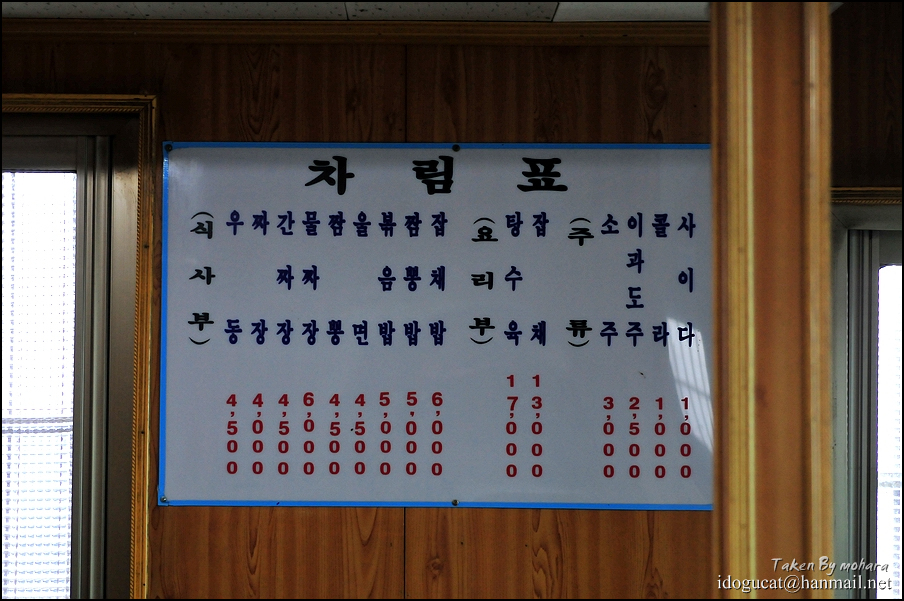 차림표
(식사부)
우동 4,500
짜장 4,000
간짜장 4,500
물짜장 6,000
짬뽕 4,500
울면 4,500
볶음밥 5,000
짬뽕밥 5,000
잡채밥 6,000
(요리부)
탕수육 17,000
잡채 13,000
(주류)
소주 3,000
이과도주 2,500
콜라 1,000
사이다 1,000
Taken By mohara
idogucat@hanmail.net